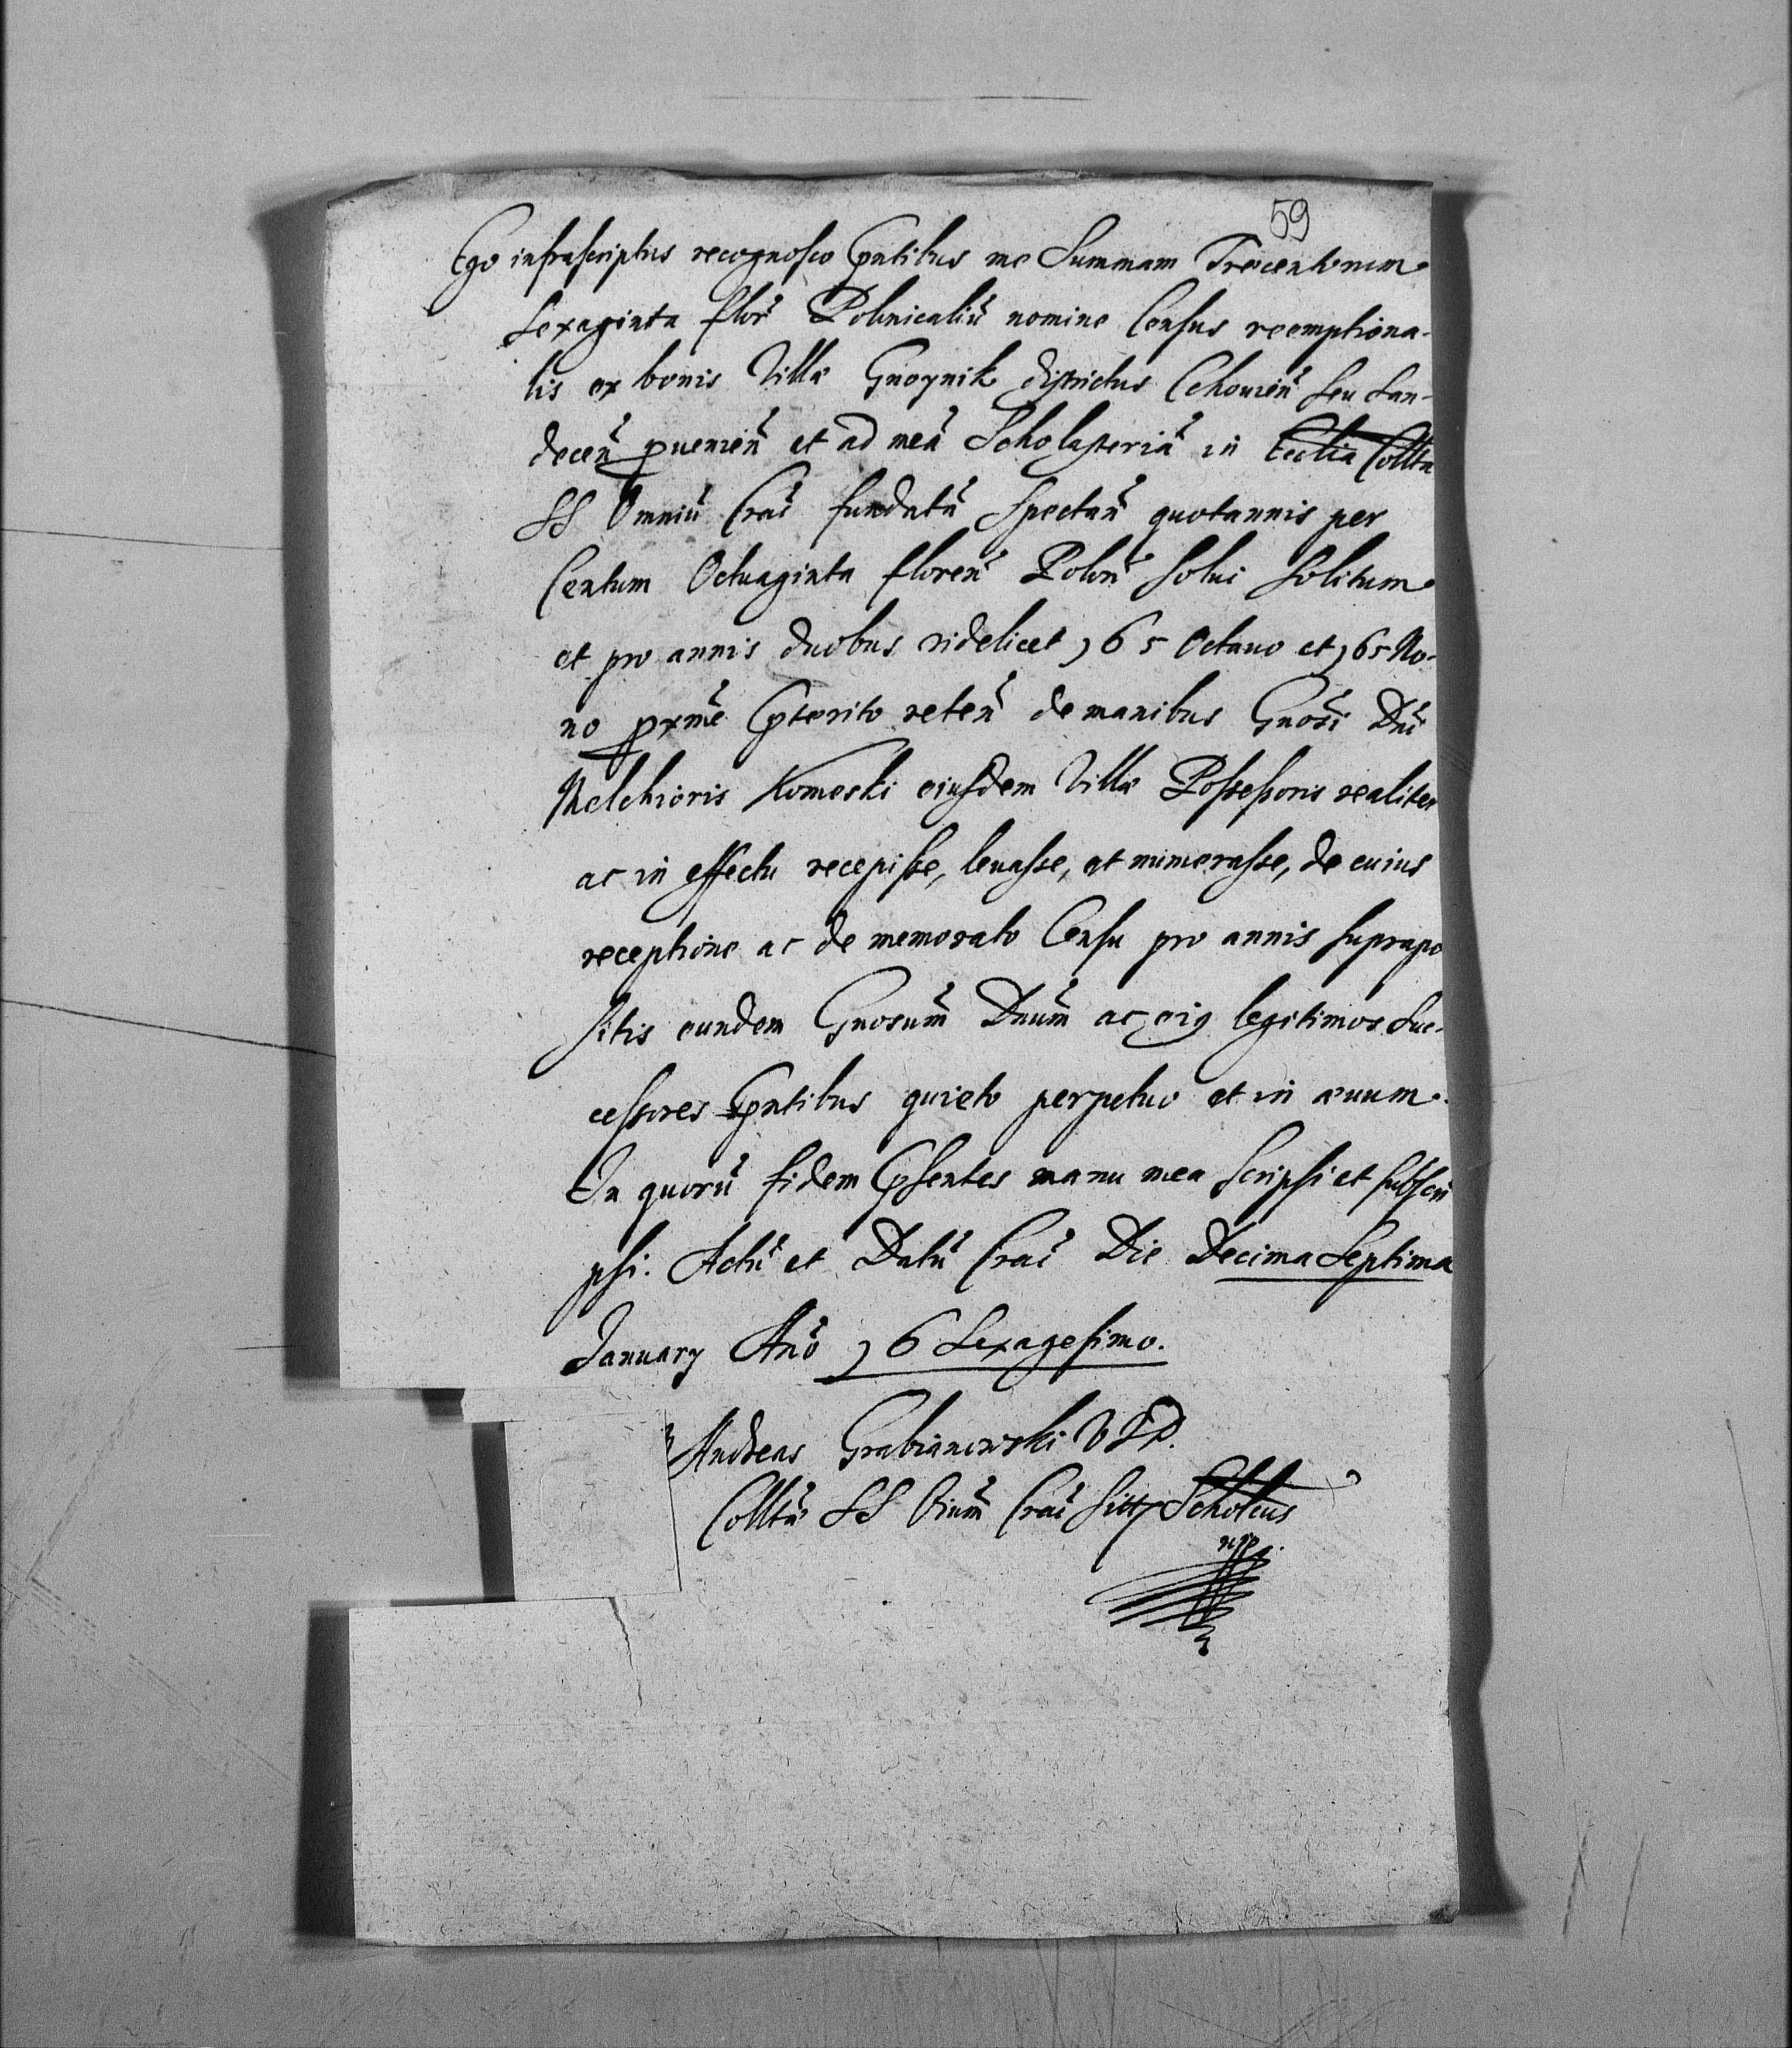 59
Ego infrascriptus recognosco pntibus me Summam Trecentorum
Sexaginta flor Polonicaliũ nomine Census reemptiona-
lis ex bonis Villæ Gnoynik districtus Cchouien̄ seu San-
decen̄ puenien̄ et ad meã Scholasteriã in Ecclia Collta
SS Omniũ Crac̄ fundatã spectan̄ quotannis per
Centum Octuaginta floren̄ Polon̄ solui solitum
et pro annis duobus videlicet 165 Octauo et 165 No-
no pxme pterito reten̄ de manibus Gnosi Dni
Melchioris Komeski eiusdem Villæ Possessoris realiter
ac in effectu recepisse, leuasse, et numerasse, de cuius
receptione ac de memorato Censu pro annis suprapo
sitis eundem Gnosum Dnum ac ei9 legitimos Suc-
cessores pntibus quieto perpetuo et in æuum.
In quorũ fidem psentes manu mea scripsi et subscri
psi. Actũ et Datũ Crac̄ Die Decima Septima
January Año 16 Sexagesimo.
Andreas Grabianowski VJD.
Colltæ SS Oium Crac̄ Scholcus
mpp.